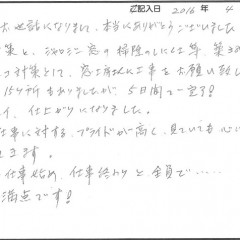 ご記入日 2016 年 4
お世話になりまして、本当にありがとうございました
策と、ジャロジー窓の掃除のしにくさ等、
対策として、窓 工事をお願い致し
15ヶ所もありましたが、5日間で完了!
イ、仕上がりになりました。
仕事に対する、プライドが高く、見ていても心
きます。
仕事始め、仕事終わりと全員で……
満点です!